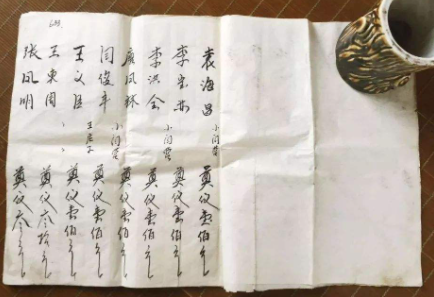 袁海昌 小闫营 奠仪壹佰元
李宝 小闫营 奠仪壹佰元
李洪全 奠仪壹佰元
凤林 小闫营 奠仪壹佰元
闫俊平 奠仪壹佰元
王文臣 奠仪壹佰元
王东周 奠仪叁拾元
张凤明 奠仪元